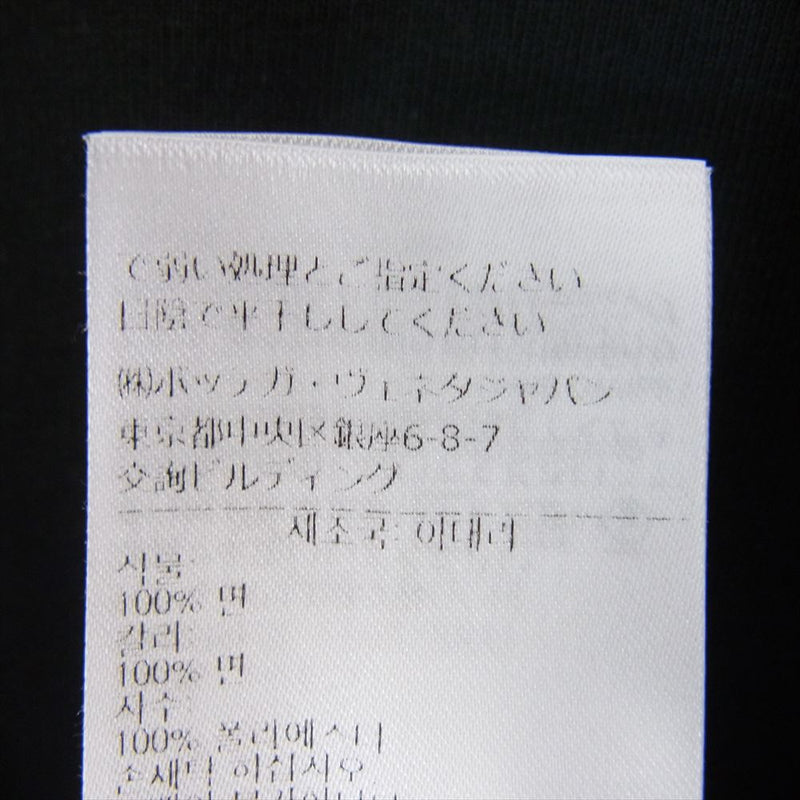 で弱い処理とご指定ください
日陰で平干ししてください
㈱ボッテガ・ヴェネタジャパン
東京都中央区銀座6-8-7
交詢ビルディング
제조국: 이태리
직물:
100% 면
칼라:
100% 면
자수:
100% 폴리에스터
손세탁 하십시오